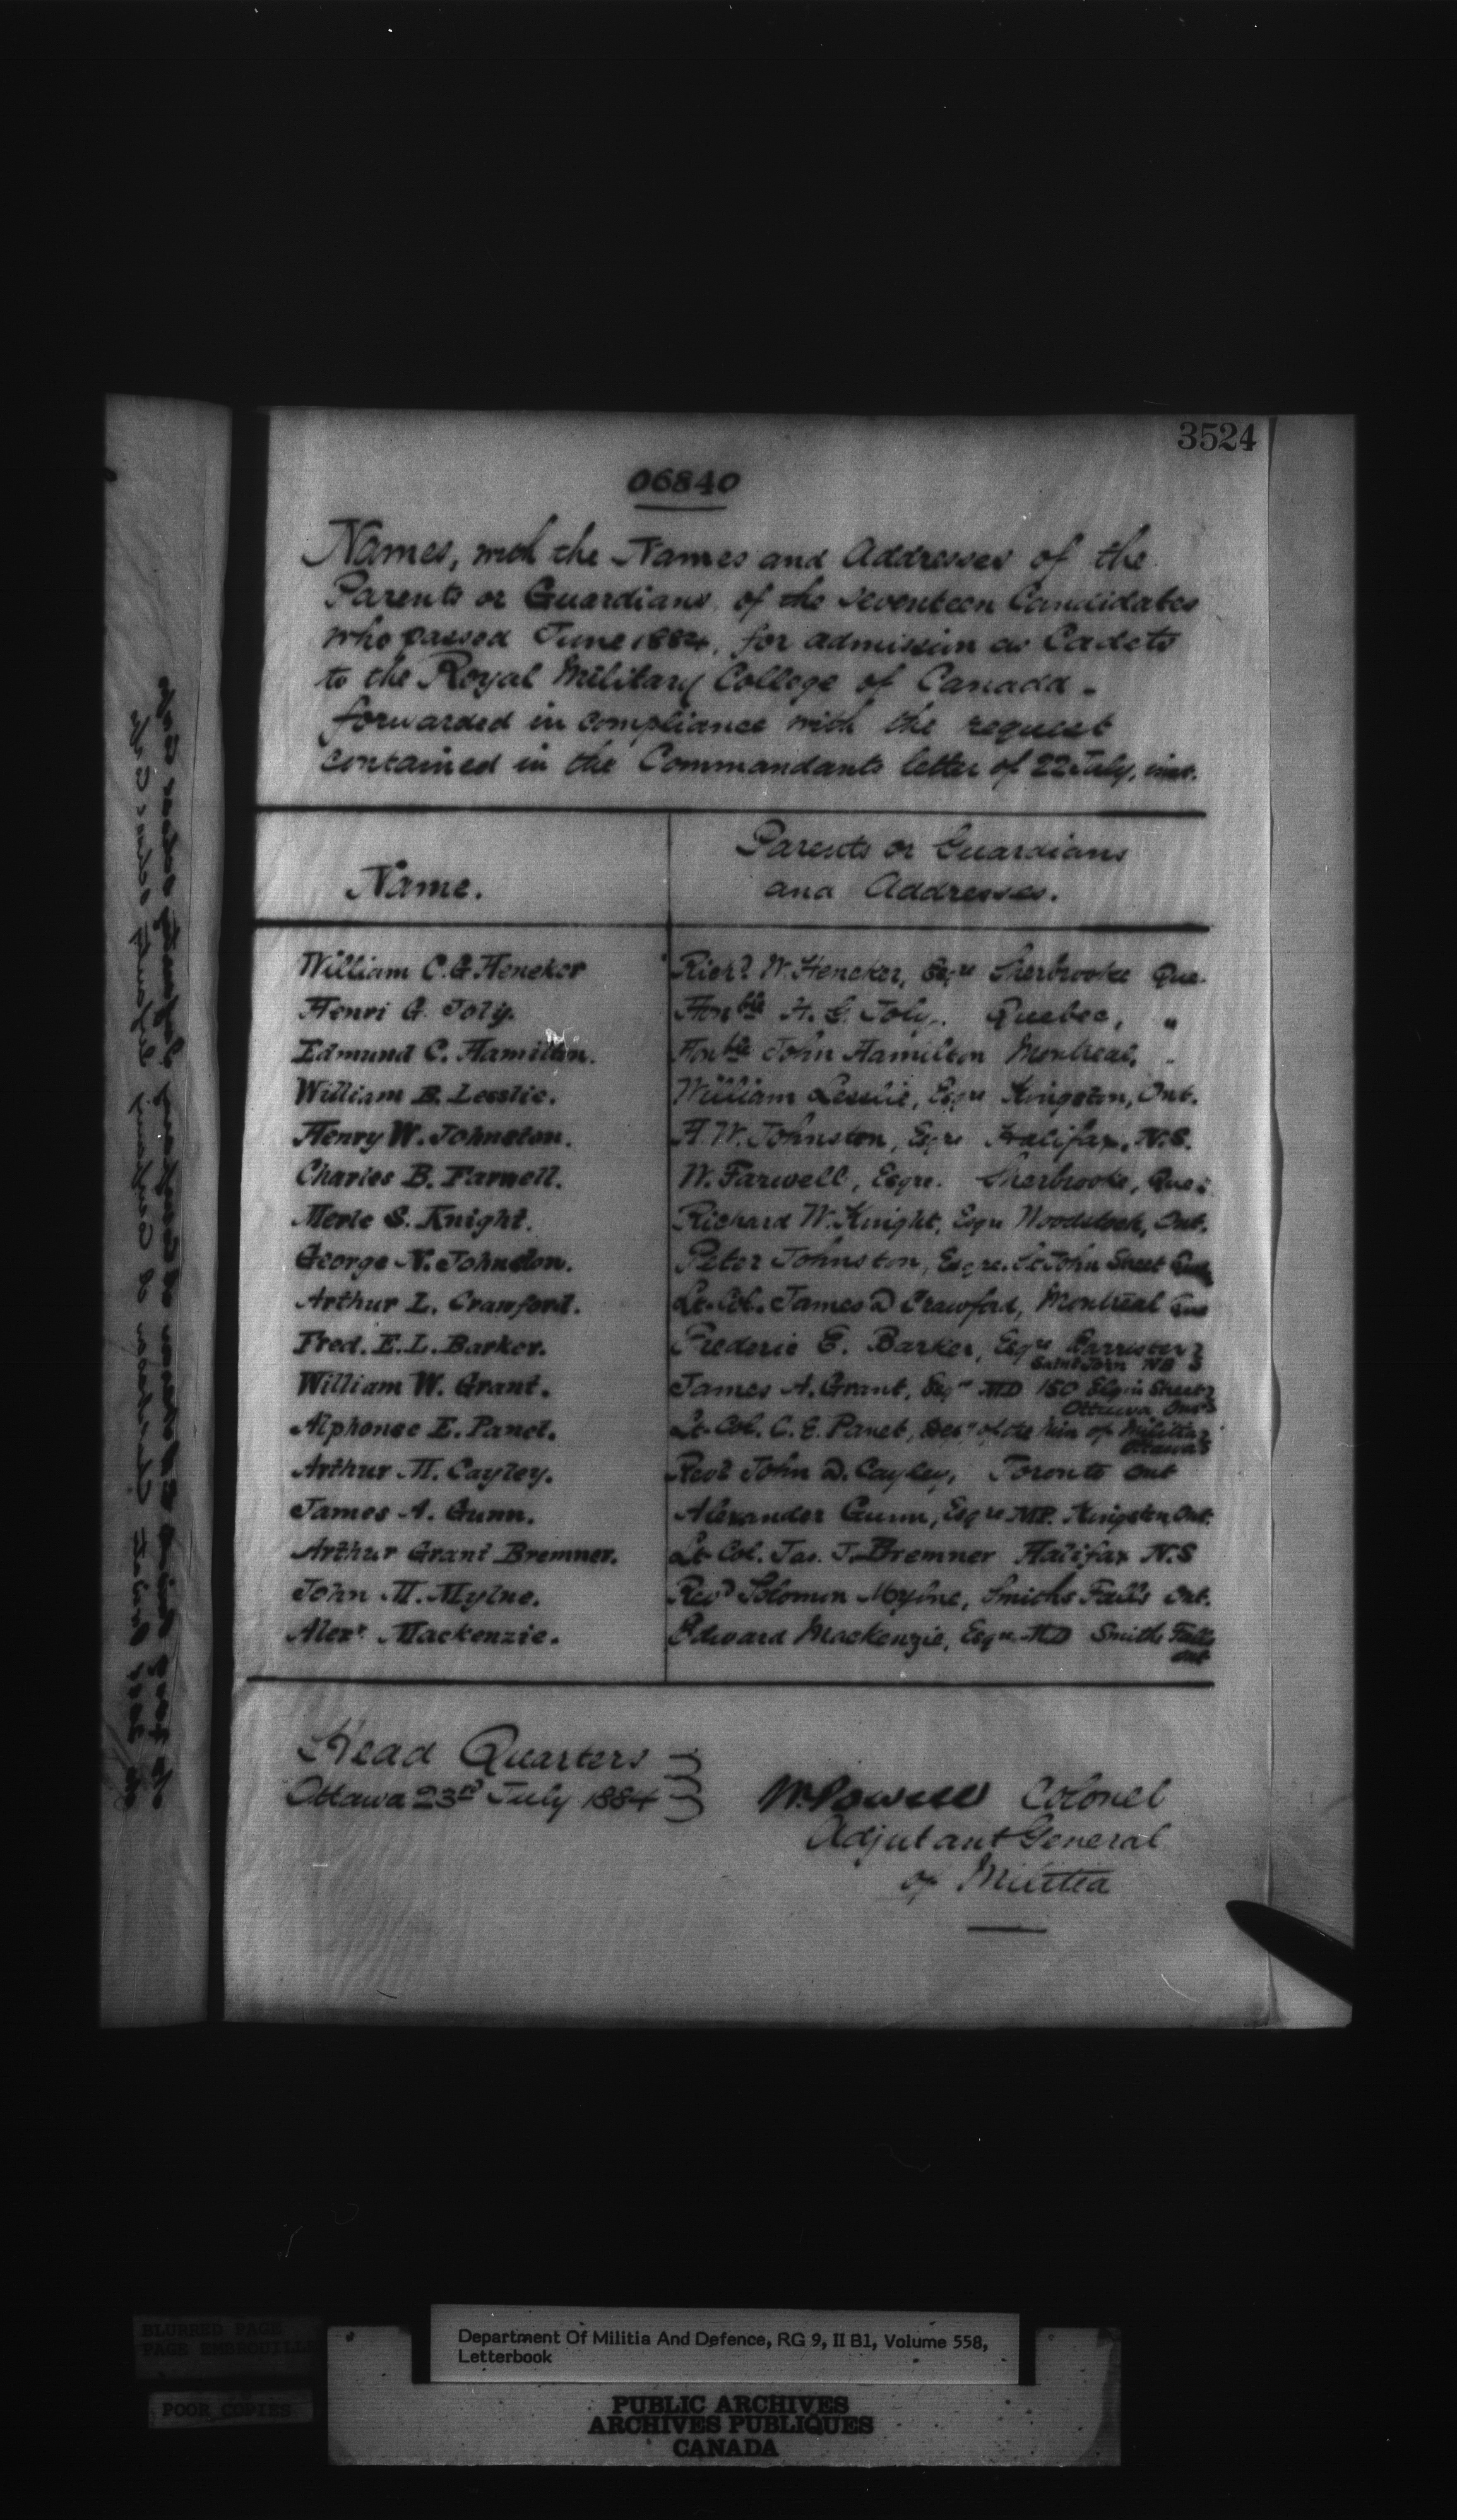 3524
06840
Names, with the Names and Addresses of the
Parents or Guardians of the seventeen Candidates
who passed June 1884, for admission as Cadets
to the Royal Military College of Canada -
forwarded in compliance with the request
contained in the Commandants letter of 22 July, inst.
Name.
Parents or Guardians
and Addresses.
William C. G Heneker Rich? W. Heneker, Esqre Sherbrooke Que.
Henri G. Joly. Honble H. G. Joly. Quebec, "
Edmund C. Hamilton. Honble John Hamilton Montreal, "
William B. Lesslie. William Lesslie, Esqre Kingston, Ont.
Henry W. Johnston. H. W. Johnston, Esqre Halifax, N.S.
Charles B. Farwell. W. Farwell, Esqre. Sherbrooke, Que:
Merle S. Knight. Richard W. Knight, Esqre Woodstock, Ont.
George N. Johnston. Peter Johnston, Esqre. St John Street Que
Arthur L. Crawford. Lt. Col. James D Crawford, Montreal Que
Fred. E. L. Barker. Frederic E. Barker, Esqre Barrister
Saint John NB
William W. Grant. James A. Grant, Esqre MD 150 Elgin Street
Ottawa Ont
Alphonse E. Panet. Lt. Col. C. E. Panet, Depy of the Min of Militia
Ottawa
Arthur M. Cayley. Revd John D. Cayley, Toronto Ont
James A. Gunn. Alexander Gunn, Esqre MP. Kingston Ont.
Arthur Grant Bremner. Lt Col. Jas. J. Bremner Halifax N.S
John M. Mylne. Revd Solomon Mylne, Smiths Falls Ont.
Alexr Mackenzie. Edward Mackenzie, Esqre. MD Smiths Falls
Ont
Head Quarters
Ottawa 23rd July 1884
W. Powell Colonel
Adjutant General
of Militia
BLURRED PAGE
PAGE EMBROUILL
POOR COPIES
Department Of Militia And Defence, RG 9, II B1, Volume 558,
Letterbook
PUBLIC ARCHIVES
ARCHIVES PUBLIQUES
CANADA